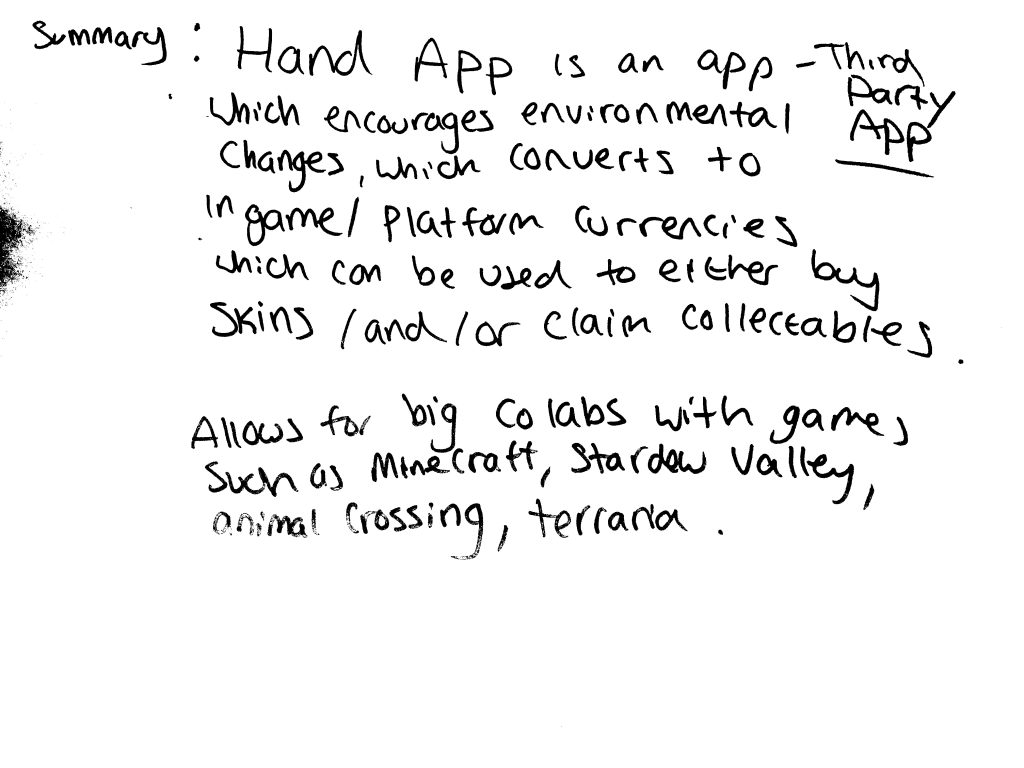 Summary : Hand App is an app - Third
Party
App
which encourages environmental
changes, which converts to
in game/ Platform currencies
which can be used to either buy
skins /and/or claim collectables.
Allows for big colabs with games
such as Minecraft, Stardew Valley,
animal crossing, terraria.